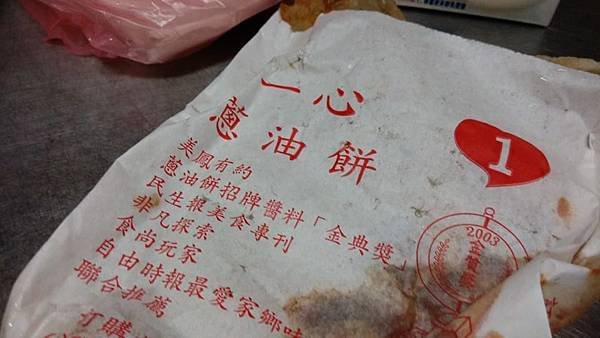 一心
蔥油餅
1
美鳳有約
蔥油餅招牌醬料「金典獎」
民生報美食專刊
非凡探索
食尚玩家
自由時報最愛家鄉味
聯合推薦
訂購
2003